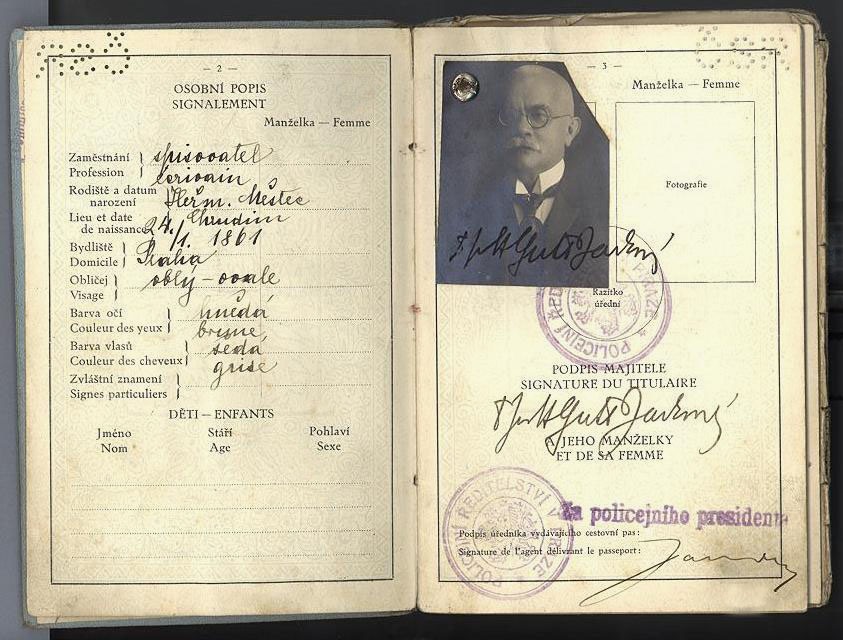 — 2 —
OSOBNÍ POPIS
SIGNALEMENT
Manželka — Femme
Zaměstnání spisovatel
Profession écrivain
Rodiště a datum
narození Heřm. Městec
Lieu et date Chrudim
de naissance 24./1. 1861
Bydliště
Domicile Praha
Obličej oblý - ovale
Visage
Barva očí hnědá
Couleur des yeux brune
Barva vlasů šedá
Couleur des cheveux grise
Zvláštní znamení
Signes particuliers
DĚTI — ENFANTS
Jméno Stáří Pohlaví
Nom Age Sexe
— 3 —
Manželka — Femme
Fotografie
Razítko
úřední
POLICEJNÍ ŘEDITELSTVÍ V PRAZE
PODPIS MAJITELE
SIGNATURE DU TITULAIRE
A JEHO MANŽELKY
ET DE SA FEMME
Za policejního presidenta
Podpis úředníka vydávajícího cestovní pas:
Signature de l'agent délivrant le passeport:
POLICEJNÍ ŘEDITELSTVÍ V PRAZE